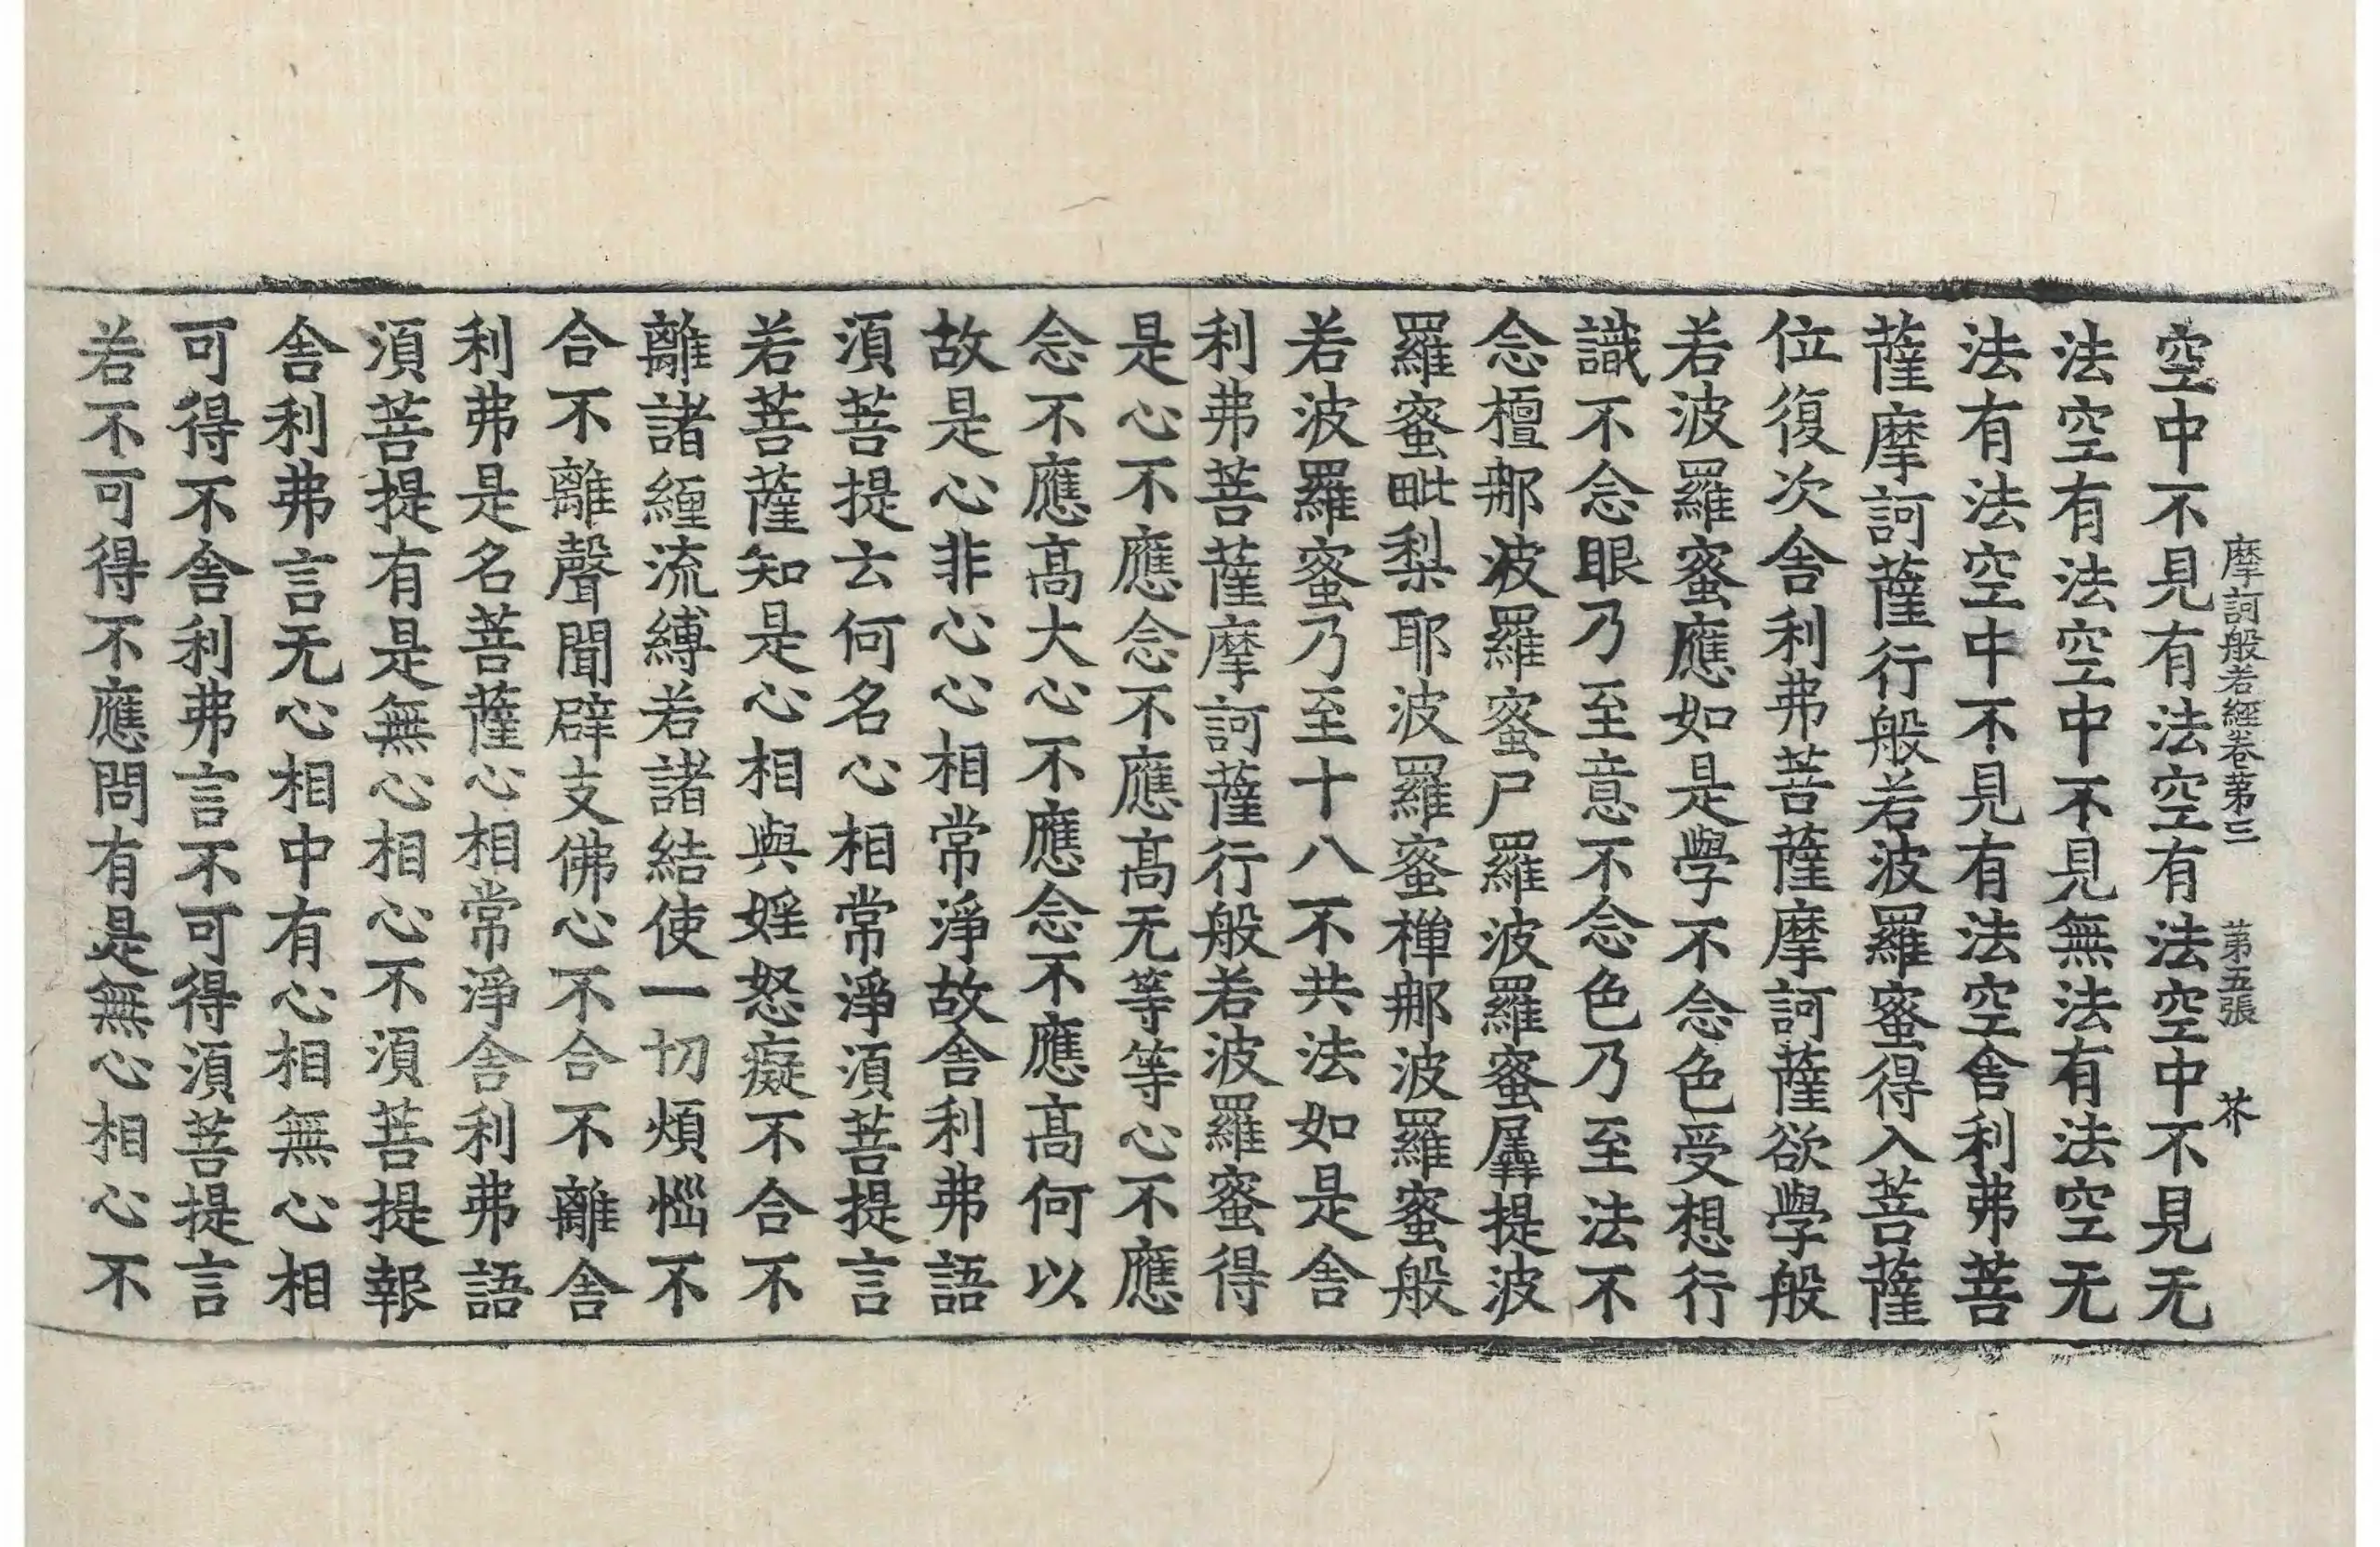 摩訶般若經卷第三 第五張 芥
空中不見有法空有法空中不見无
法空有法空中不見無法有法空无
法有法空中不見有法空舍利弗菩
薩摩訶薩行般若波羅蜜得入菩薩
位復次舍利弗菩薩摩訶薩欲學般
若波羅蜜應如是學不念色受想行
識不念眼乃至意不念色乃至法不
念檀那波羅蜜尸羅波羅蜜羼提波
羅蜜毗梨耶波羅蜜禪那波羅蜜般
若波羅蜜乃至十八不共法如是舍
利弗菩薩摩訶薩行般若波羅蜜得
是心不應念不應高无等等心不應
念不應高大心不應念不應高何以
故是心非心心相常淨故舍利弗語
須菩提云何名心相常淨須菩提言
若菩薩知是心相與婬怒癡不合不
離諸纏流縛若諸結使一切煩惱不
合不離聲聞辟支佛心不合不離舍
利弗是名菩薩心相常淨舍利弗語
須菩提有是無心相心不須菩提報
舍利弗言无心相中有心相無心相
可得不舍利弗言不可得須菩提言
若不可得不應問有是無心相心不